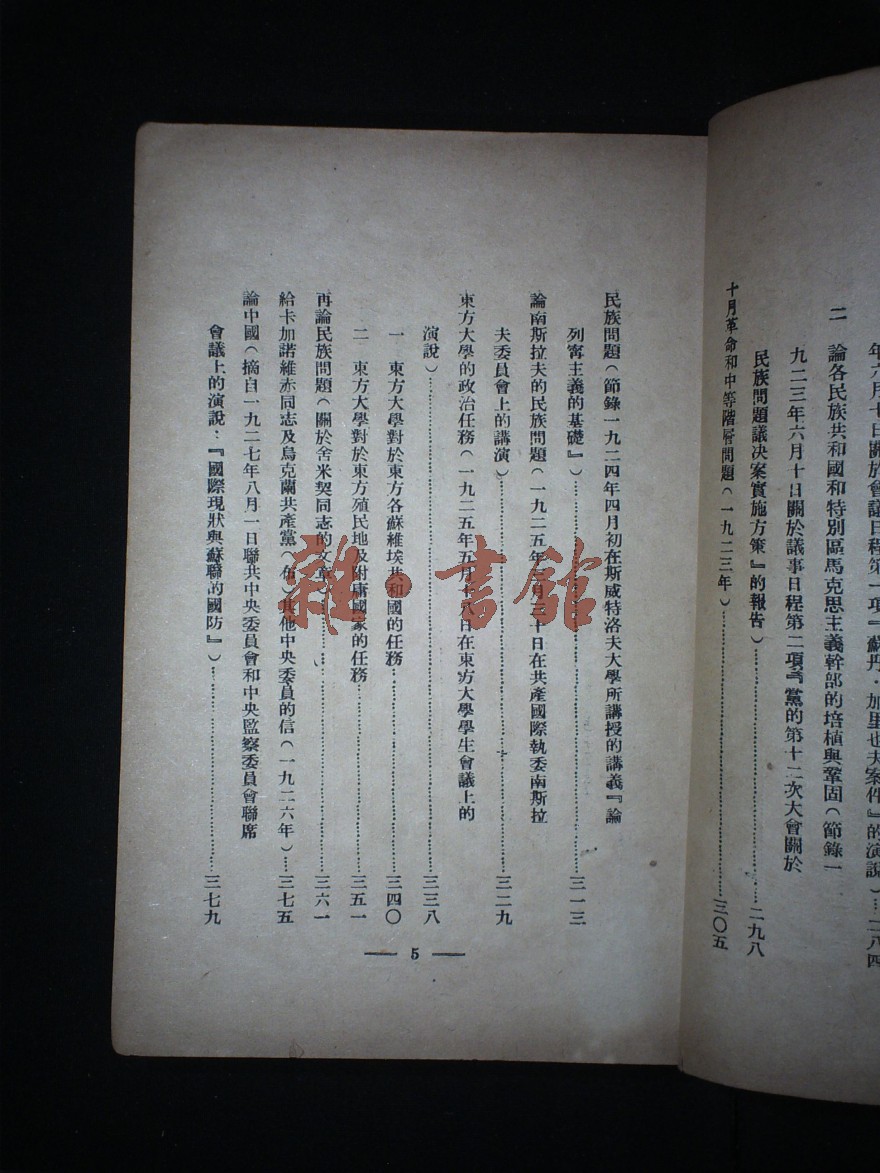 年六月十日關於會議日程第一項『蘇丹·加里也夫案件』的演說）…二八四
二　論各民族共和國和特別區馬克思主義幹部的培植與鞏固（節錄一
九二三年六月十日關於議事日程第二項『黨的第十二次大會關於
民族問題議決案實施方策』的報告）……二九八
十月革命和中等階層問題（一九二三年）……三〇五
民族問題（節錄一九二四年四月初在斯威特洛夫大學所講授的講義『論
列寧主義的基礎』）……三一三
論南斯拉夫的民族問題（一九二五年三月三十日在共產國際執委南斯拉
夫委員會上的講演）……三二九
東方大學的政治任務（一九二五年五月十八日在東方大學學生會議上的
演說）……三三八
一　東方大學對於東方各蘇維埃共和國的任務……三四〇
二　東方大學對於東方殖民地及附庸國家的任務……三五一
再論民族問題（關於舍米契同志的文章）……三六一
給卡加諾維赤同志及烏克蘭共產黨（布）其他中央委員的信（一九二六年）…三七五
論中國（摘自一九二七年八月一日聯共中央委員會和中央監察委員會聯席
會議上的演說：『國際現狀與蘇聯的國防』）……三七九
— 5 —
雜·書館